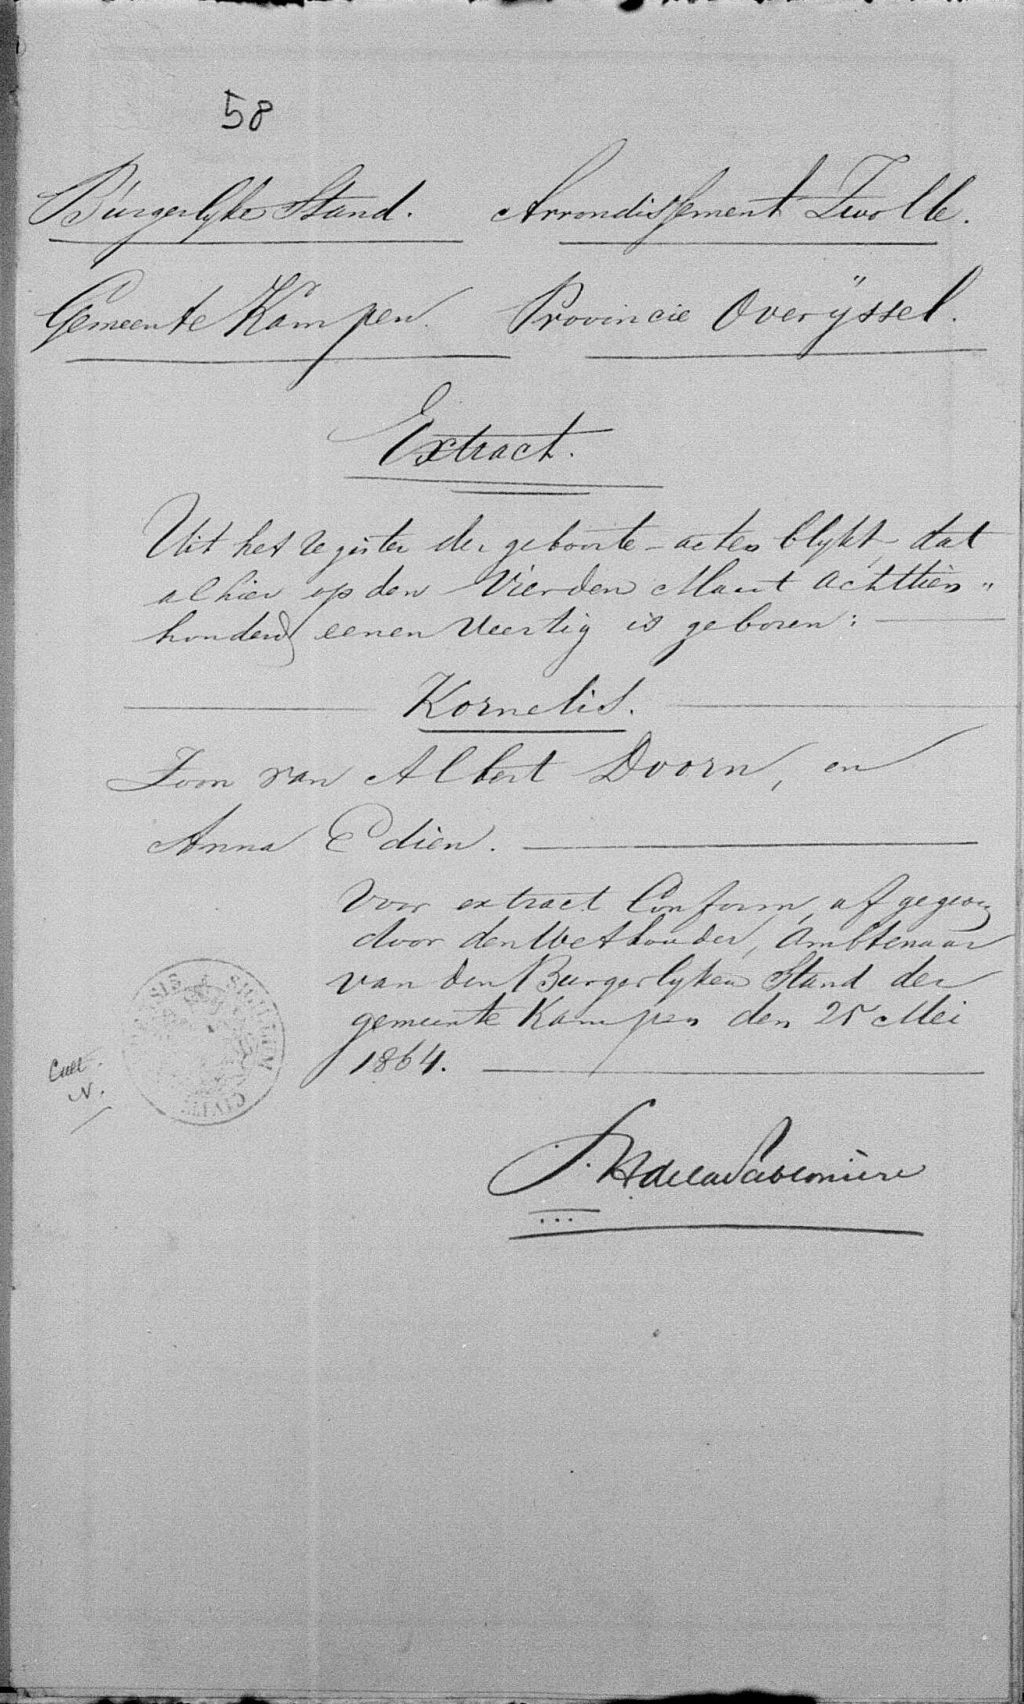 58
Burgerlyke Stand. Arrondissement Zwolle.
Gemeente Kampen. Provincie Overÿssel.
Extract.
Uit het register der geboorte-acten blykt, dat
alhier op den Vierden Maart Achttien"
honderd eenen Veertig is geboren:
Kornelis.
Zoon van Albert Doorn, en
Anna Edien.
Voor extract Conform, afgegeven
door den Wethouder, Ambtenaar
van den Burgerlyken Stand der
gemeente Kampen den 25 Mei
1864.
SIGILLUM CIVITATIS
Coll.
N.
de la Sablonière